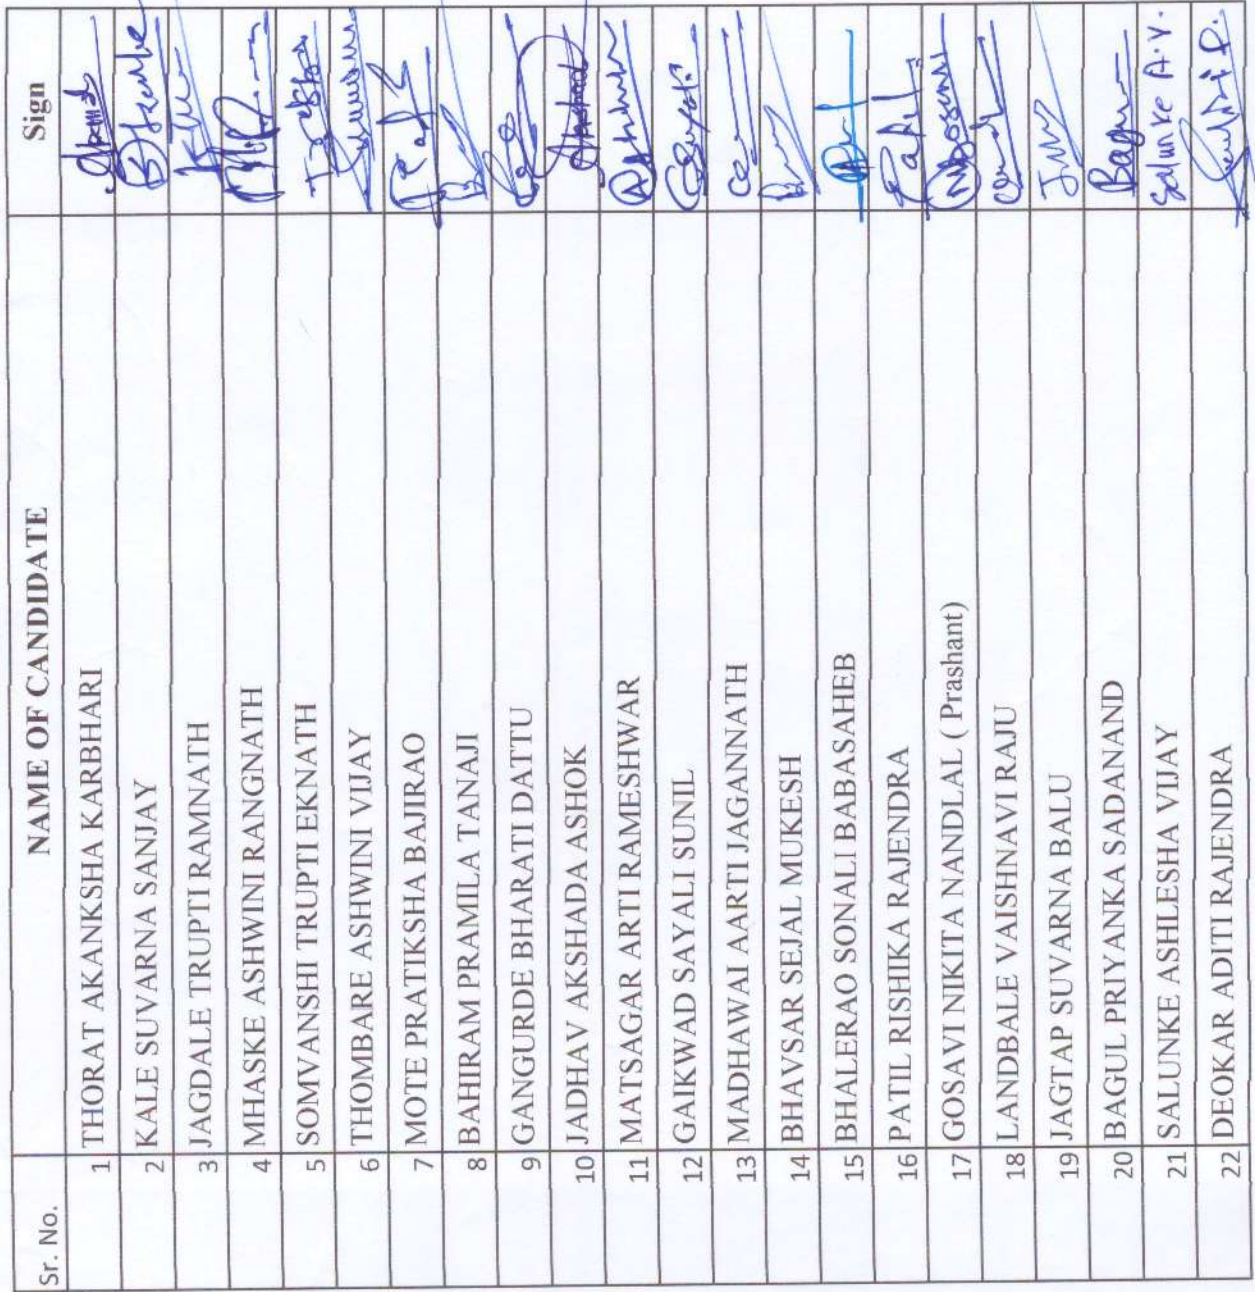 Sr. No. NAME OF CANDIDATE Sign
1 THORAT AKANKSHA KARBHARI
2 KALE SUVARNA SANJAY
3 JAGDALE TRUPTI RAMNATH
4 MHASKE ASHWINI RANGNATH
5 SOMVANSHI TRUPTI EKNATH
6 THOMBARE ASHWINI VIJAY
7 MOTE PRATIKSHA BAJIRAO
8 BAHIRAM PRAMILA TANAJI
9 GANGURDE BHARATI DATTU
10 JADHAV AKSHADA ASHOK
11 MATSAGAR ARTI RAMESHWAR
12 GAIKWAD SAYALI SUNIL
13 MADHAWAI AARTI JAGANNATH
14 BHAVSAR SEJAL MUKESH
15 BHALERAO SONALI BABASAHEB
16 PATIL RISHIKA RAJENDRA
17 GOSAVI NIKITA NANDLAL ( Prashant)
18 LANDBALE VAISHNAVI RAJU
19 JAGTAP SUVARNA BALU
20 BAGUL PRIYANKA SADANAND
21 SALUNKE ASHLESHA VIJAY Salunke A.V.
22 DEOKAR ADITI RAJENDRA